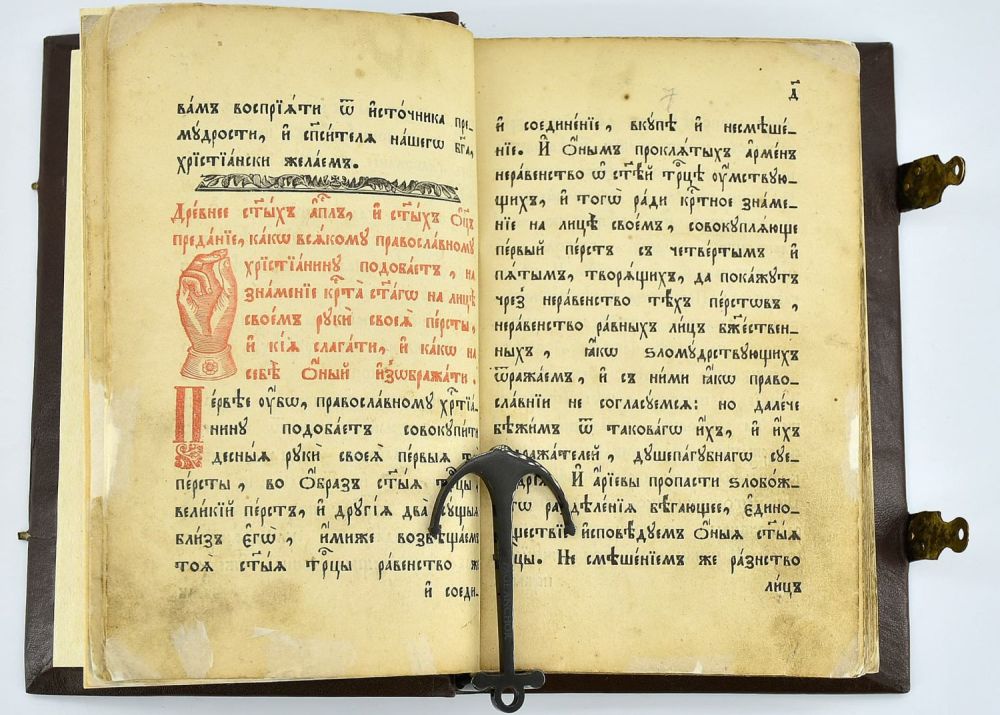 ва́мъ воспрїѧ́ти ѿ и҆сто́чника пре-
мꙋ́дрости, и҆ сп҃си́телѧ на́шегѡ бг҃а,
хрїстїа́нски жела́емъ.
Дре́внее ст҃ы́хъ а҆пⷭ҇лъ, и҆ ст҃ы́хъ ѻ҆ц҃ъ
преда́нїе, ка́кѡ всѧ́комꙋ правосла́вномꙋ
хрїстїа́нинꙋ подоба́етъ, на
зна́менїе крⷭ҇та̀ ст҃а́гѡ на лицѣ̀
свое́мъ рꙋкѝ своеѧ̀ пе́рсты,
и҆ кі́ѧ слага́ти, и҆ ка́кѡ на
себѣ̀ ѻ҆́ный и҆з̾ѡбража́ти.
Пе́рвѣе ᲂу҆́бѡ, правосла́вномꙋ хрⷭ҇тїа́-
нинꙋ подоба́етъ совокꙋпи́ти
десны́ѧ рꙋкѝ своеѧ̀ пе́рвыѧ
пе́рсты, во ѻ҆́бразъ ст҃ы́ѧ трⷪ҇цы,
вели́кїй пе́рстъ, и҆ дрꙋгі́ѧ два̀ сꙋ́щыѧ
бли́зъ є҆гѡ̀, и҆́миже возвѣща́емъ
тоѧ̀ ст҃ы́ѧ трⷪ҇цы ра́венство же
и҆ соеди-
д҃
7
и҆ соедине́нїе, вкꙋ́пѣ и҆ несмѣше́-
нїе. И҆ ѻ҆́нымъ проклѧ́тыхъ а҆рме́нъ
нера́венство ѿ ст҃ѣ́й трⷪ҇цѣ ᲂу҆́мствꙋю-
щихъ, и҆ тогѡ̀ ра́ди крⷭ҇тное зна́ме-
нїе на лицѣ̀ свое́мъ, совокꙋплѧ́юще
пе́рвый пе́рстъ съ четве́ртымъ и҆
пѧ́тымъ, творѧ́щихъ, да пока́жꙋтъ
чрез̾ нера́венство тѣ́хъ пе́рстѡвъ,
нера́венство ра́вныхъ ли́цъ бж҃е́ствен-
ныхъ, ꙗ҆́кѡ ѕломꙋ́дрствꙋющихъ
ѿража́емъ, и҆ съ ни́ми ꙗ҆́кѡ право-
сла́внїи не согласꙋ́емсѧ: но дале́че
бѣжи́мъ ѿ такова́гѡ и҆́хъ, и҆ и҆́хъ
дꙋшепа́гꙋбнагѡ сꙋе-
И҆ а҆рі́евы про́пасти ѕлобо́ж-
раздѣле́нїѧ бѣ́гающее, є҆ди́но-
и҆сповѣ́дꙋемъ ѻ҆́ныѧ ст҃ы́ѧ
Не смѣше́нїемъ же ра́знство
ли́цъ